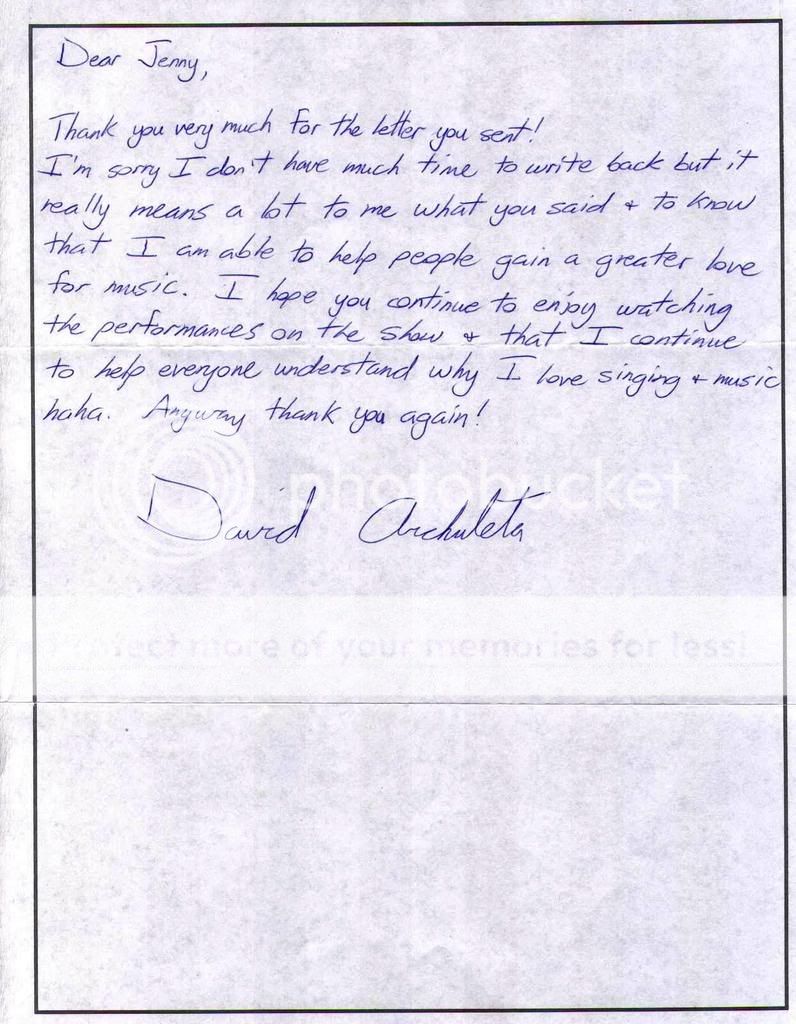 Dear Jenny,
Thank you very much for the letter you sent!
I'm sorry I don't have much time to write back but it
really means a lot to me what you said + to know
that I am able to help people gain a greater love
for music. I hope you continue to enjoy watching
the performances on the show + that I continue
to help everyone understand why I love singing + music
haha. Anyway thank you again!
photobucket
David Archuleta
Protect more of your memories for less!